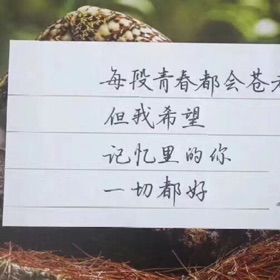 每段青春都会苍
但我希望
记忆里的你
一切都好